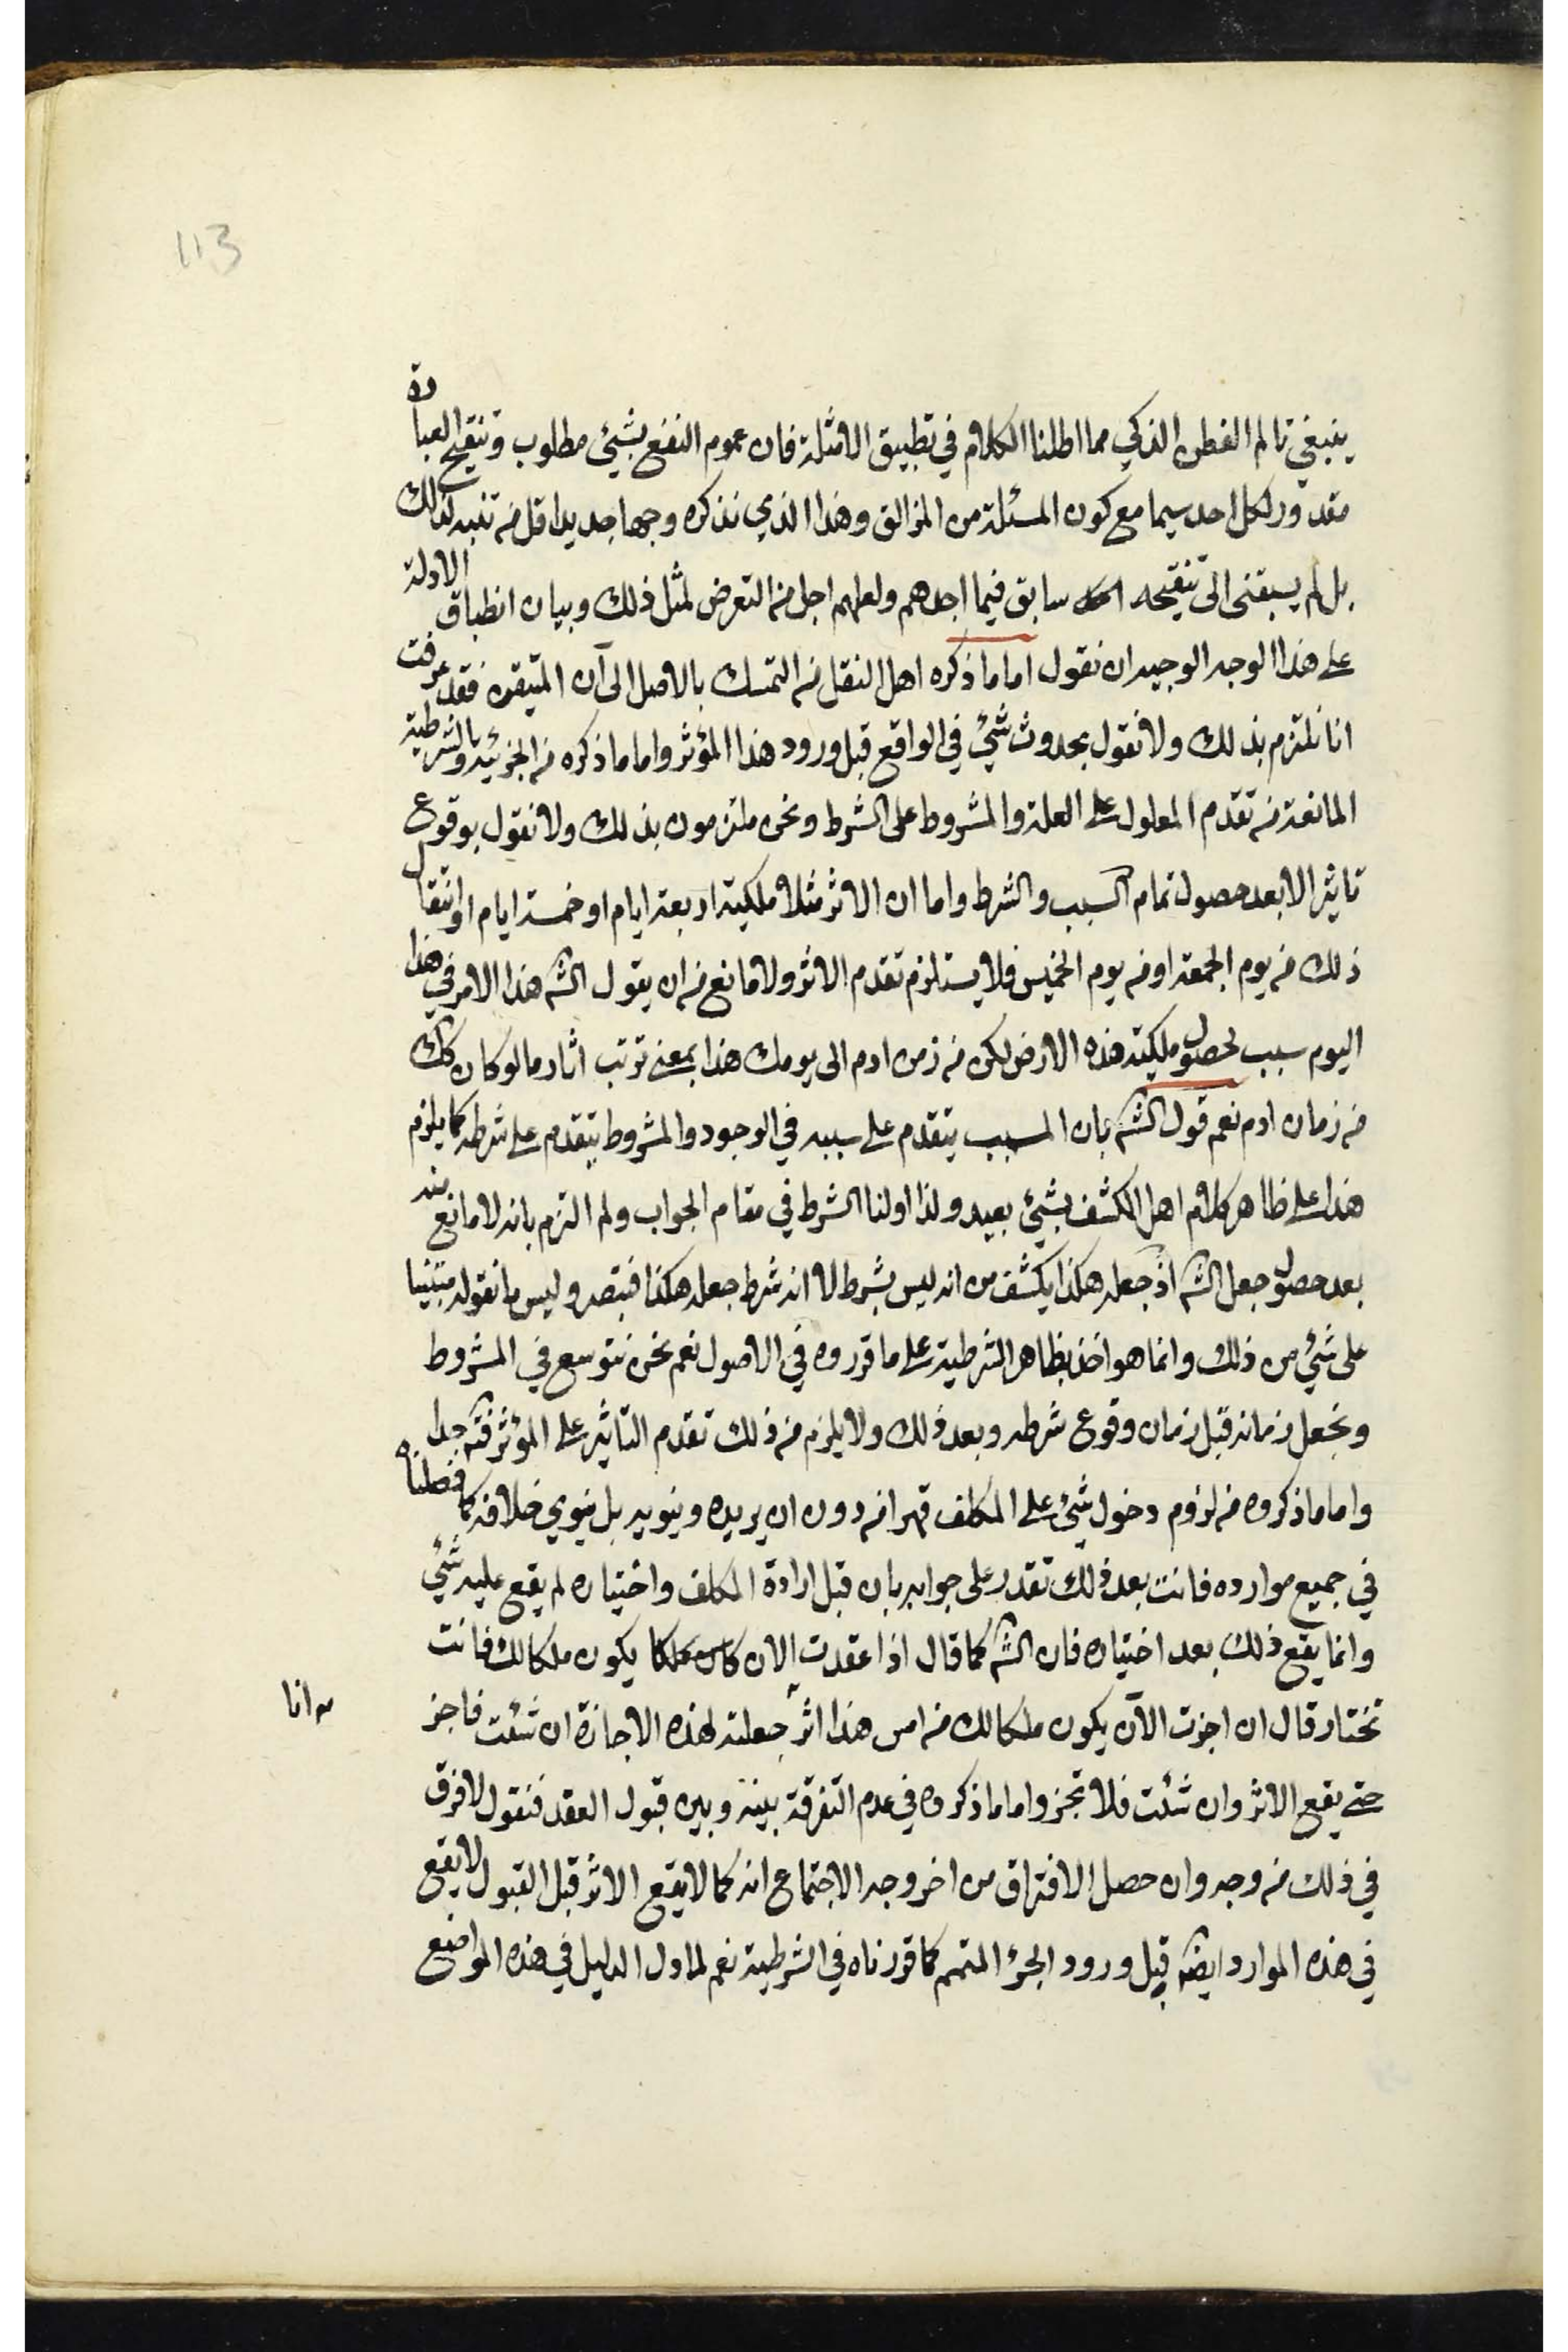 113
ينبغي تالم الفطن الذكي مما اطلنا الكلام في تطبيق الامثلة فان عموم النفع بشيئ مطلوب وتنقيح العبارة
مقدور لكل احد سيما مع كون المسئلة من المزالق وهذا الذي نذكره وجها جديدا قل من تنبه لذلك
بل لم يسبقنى الى تنقيحه سابق فيما اجدهم ولعلهم اجل من التعرض لمثل ذلك وبيان انطباق الادلة
على هذا الوجه الوجيه ان نقول اما ما ذكره اهل النقل من التمسك بالاصل الى آن المتيقن فقد عرفت
انا نلتزم بذلك ولا نقول بحدوث شيئ في الواقع قبل ورود هذا المؤثر واما ما ذكره من الجزئية والشرطية
المانعة من تقدم المعلول على العلة والمشروط على الشرط ونحن ملتزمون بذلك ولا نقول بوقوع
تاثير الا بعد حصول تمام السبب والشرط واما ان الاثر مثلا ملكية اربعة ايام او خمسة ايام او انتقال
ذلك من يوم الجمعة او من يوم الخميس فلا يستلزم تقدم الاثر ولا مانع من ان يقول الشم هذا الامر في هذا
اليوم سبب لحصول ملكية هذه الارض لكن من زمن ادم الى يومك هذا بمعنى ترتب اثار ما لو كان كك
من زمان ادم نعم قول الشم بان المسبب يتقدم على سببه في الوجود والمشروط يتقدم على شرطه كما يلزم
هذا على ظاهر كلام اهل الكشف بشيئ بعيد ولذا اولنا الشرط في مقام الجواب ولم التزم بانه لا مانع منه
بعد حصول جعل الشم اذ جعله هكذا يكشف من انه ليس بشرط لا انه شرط جعله هكذا فتبصر وليس ما نقوله مبتنيا
على شيئ من ذلك وانما هو اخذ بظاهر الشرطية على ما قرروه في الاصول نعم نحن نتوسع في المشروط
ونجعل زمانه قبل زمان وقوع شرطه وبعد ذلك ولا يلزم من ذلك تقدم التاثير على المؤثر فتم جدا
واما ما ذكروه من لزوم دخول شيئ على المكلف قهرا من دون ان يريده وينويه بل ينوي خلافه كما فصلناه
في جميع موارده فانت بعد ذلك تقدر على جوابه بان قبل ارادة المكلف واختياره لم يقع عليه شيئ
وانما يقع ذلك بعد اختياره فان الشم كما قال اذا عقدت الان يكون ملكا لك فانت
تختار قال ان اجزت الآن يكون ملكا لك من امس هذا اثر جعلته لهذه الاجازة ان شئت فاجز
انا
حتى يقع الاثر وان شئت فلا تجز واما ما ذكروه في عدم التفرقة بينه وبين قبول العقد فنقول لا فرق
في ذلك من وجه وان حصل الافتراق من اخر وجه الاجتماع انه كما لا يقع الاثر قبل القبول لا يقع
في هذه الموارد ايضم قبل ورود الجزء المتمم كما قررناه في الشرطية نعم لما دل الدليل في هذه المواضع